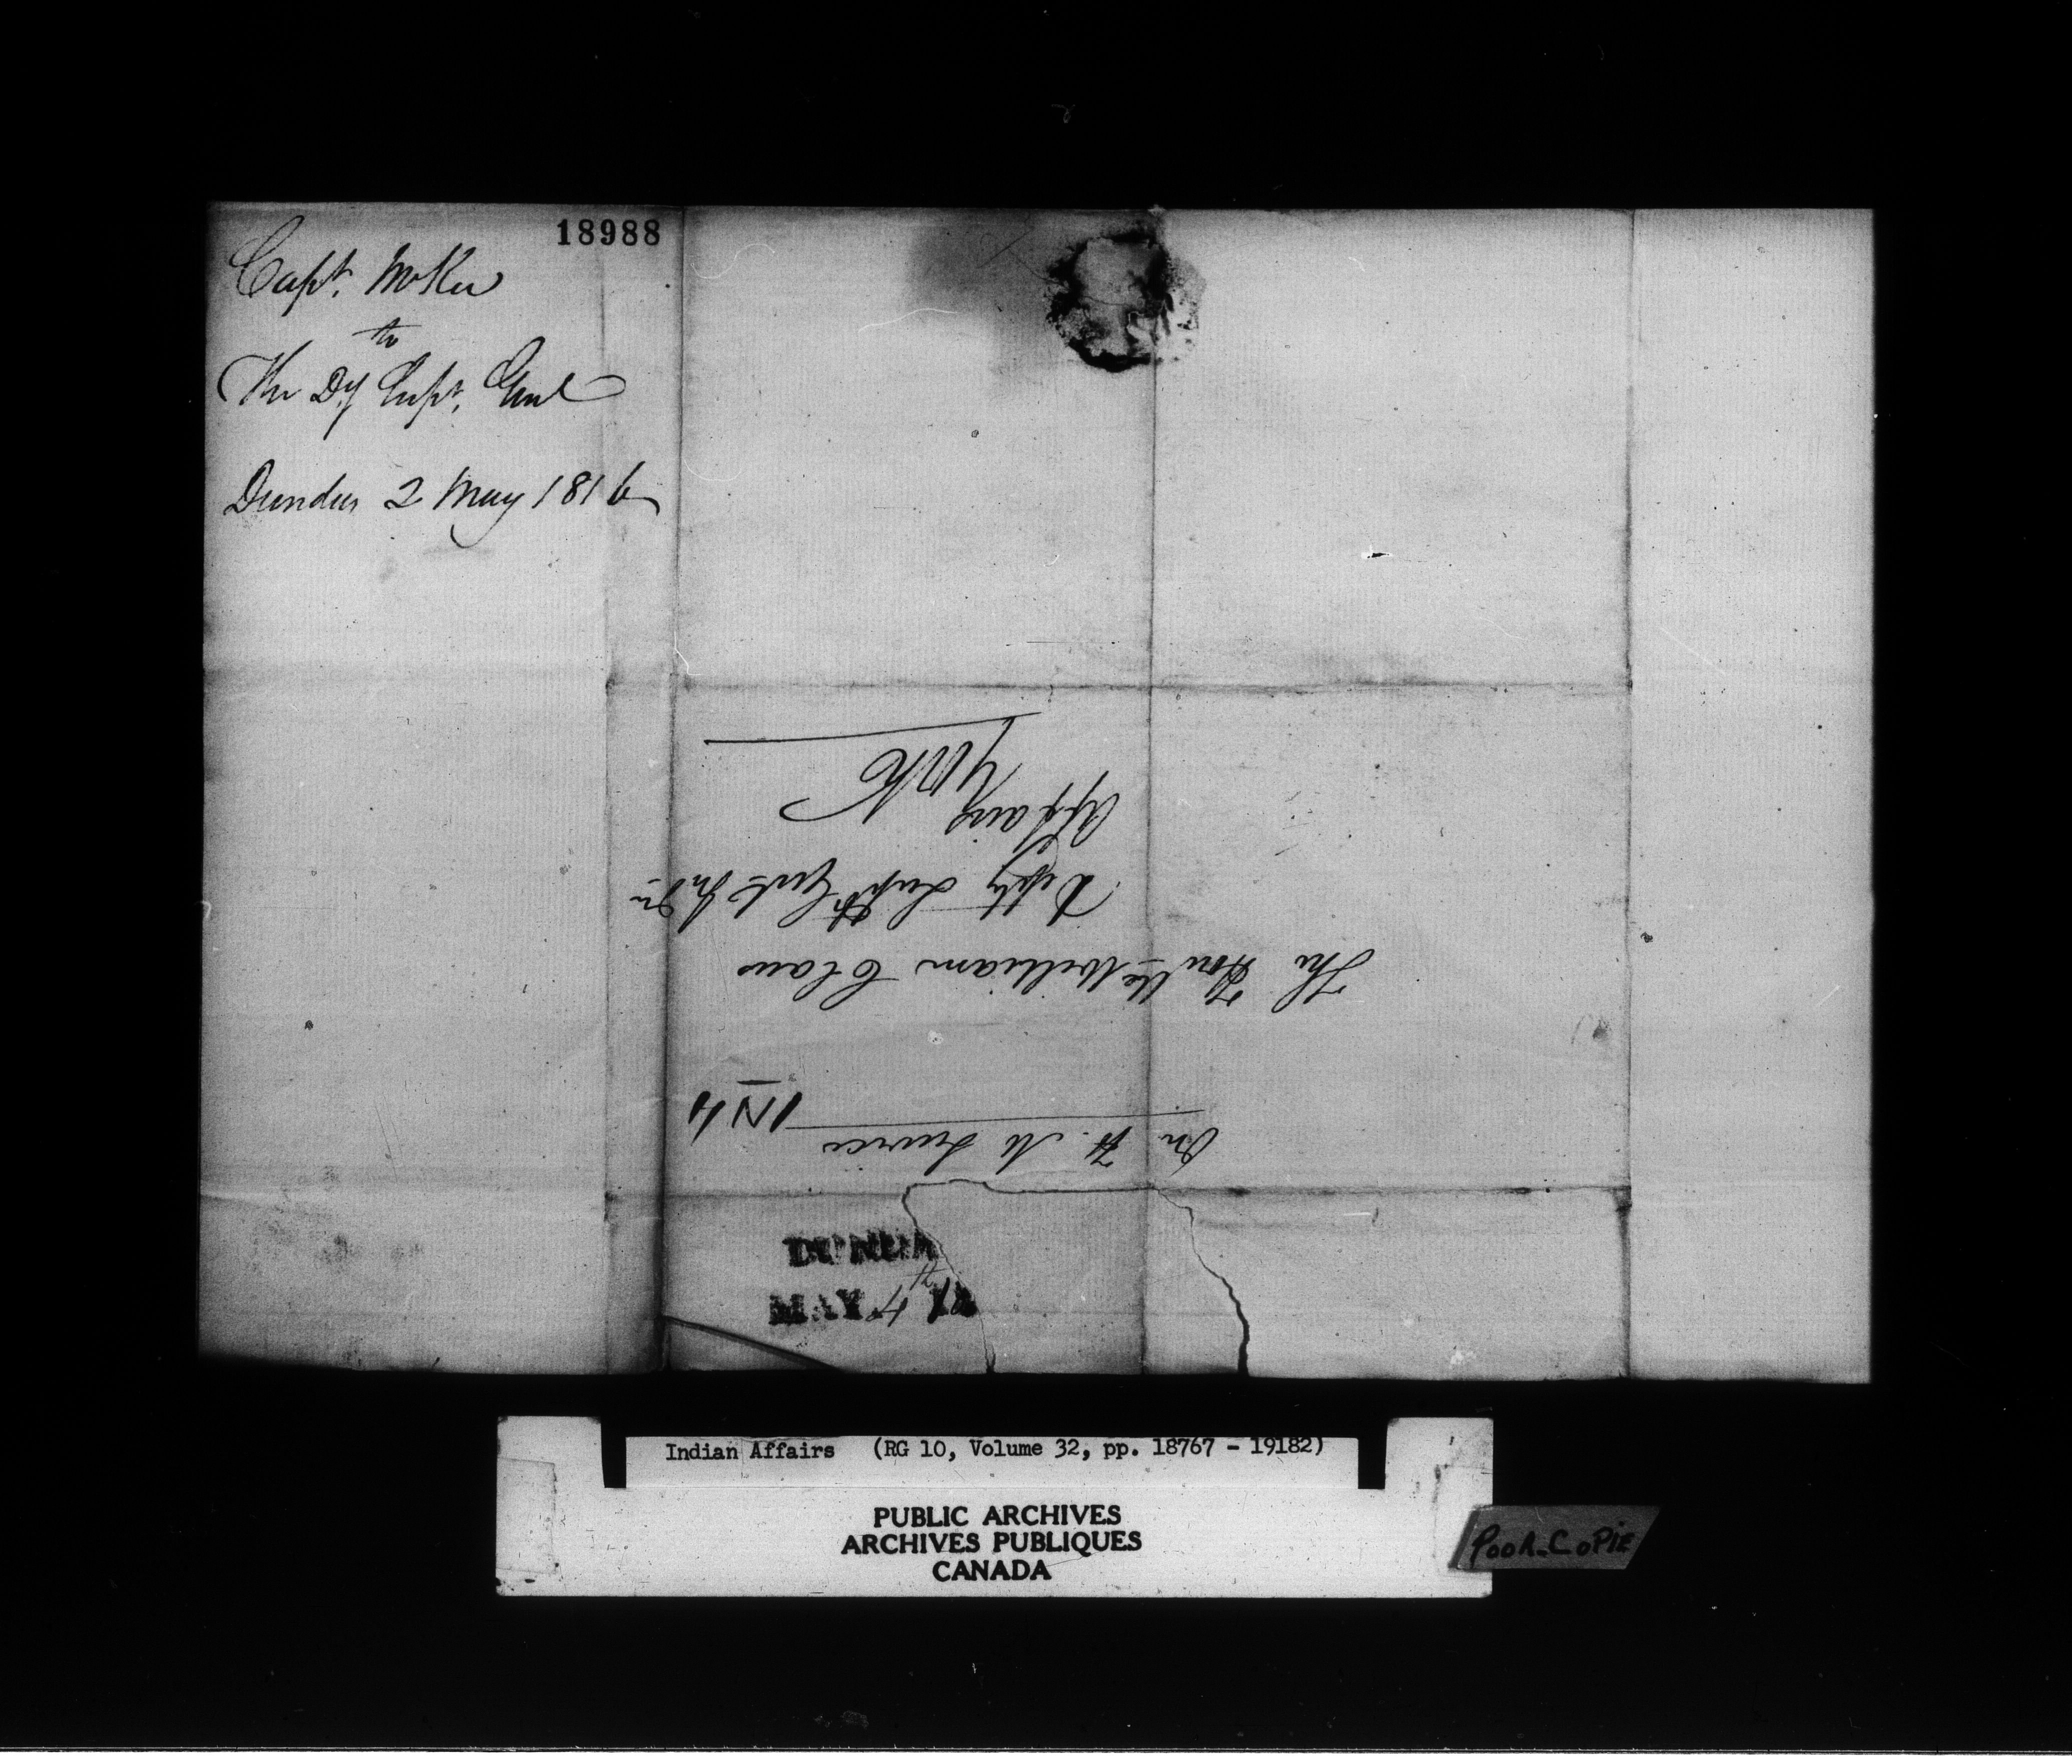 18988
Capt. McKee
to
The Dy Supt. Genl
Dundas 2 May 1816
On H. M Service
The Honble William Claus
Depty Supt Genl Indn
Affairs
York
DUNDA
MAY 4
Indian Affairs (RG 10, Volume 32, pp. 18767 - 19182)
PUBLIC ARCHIVES
ARCHIVES PUBLIQUES
CANADA
POOR COPIE